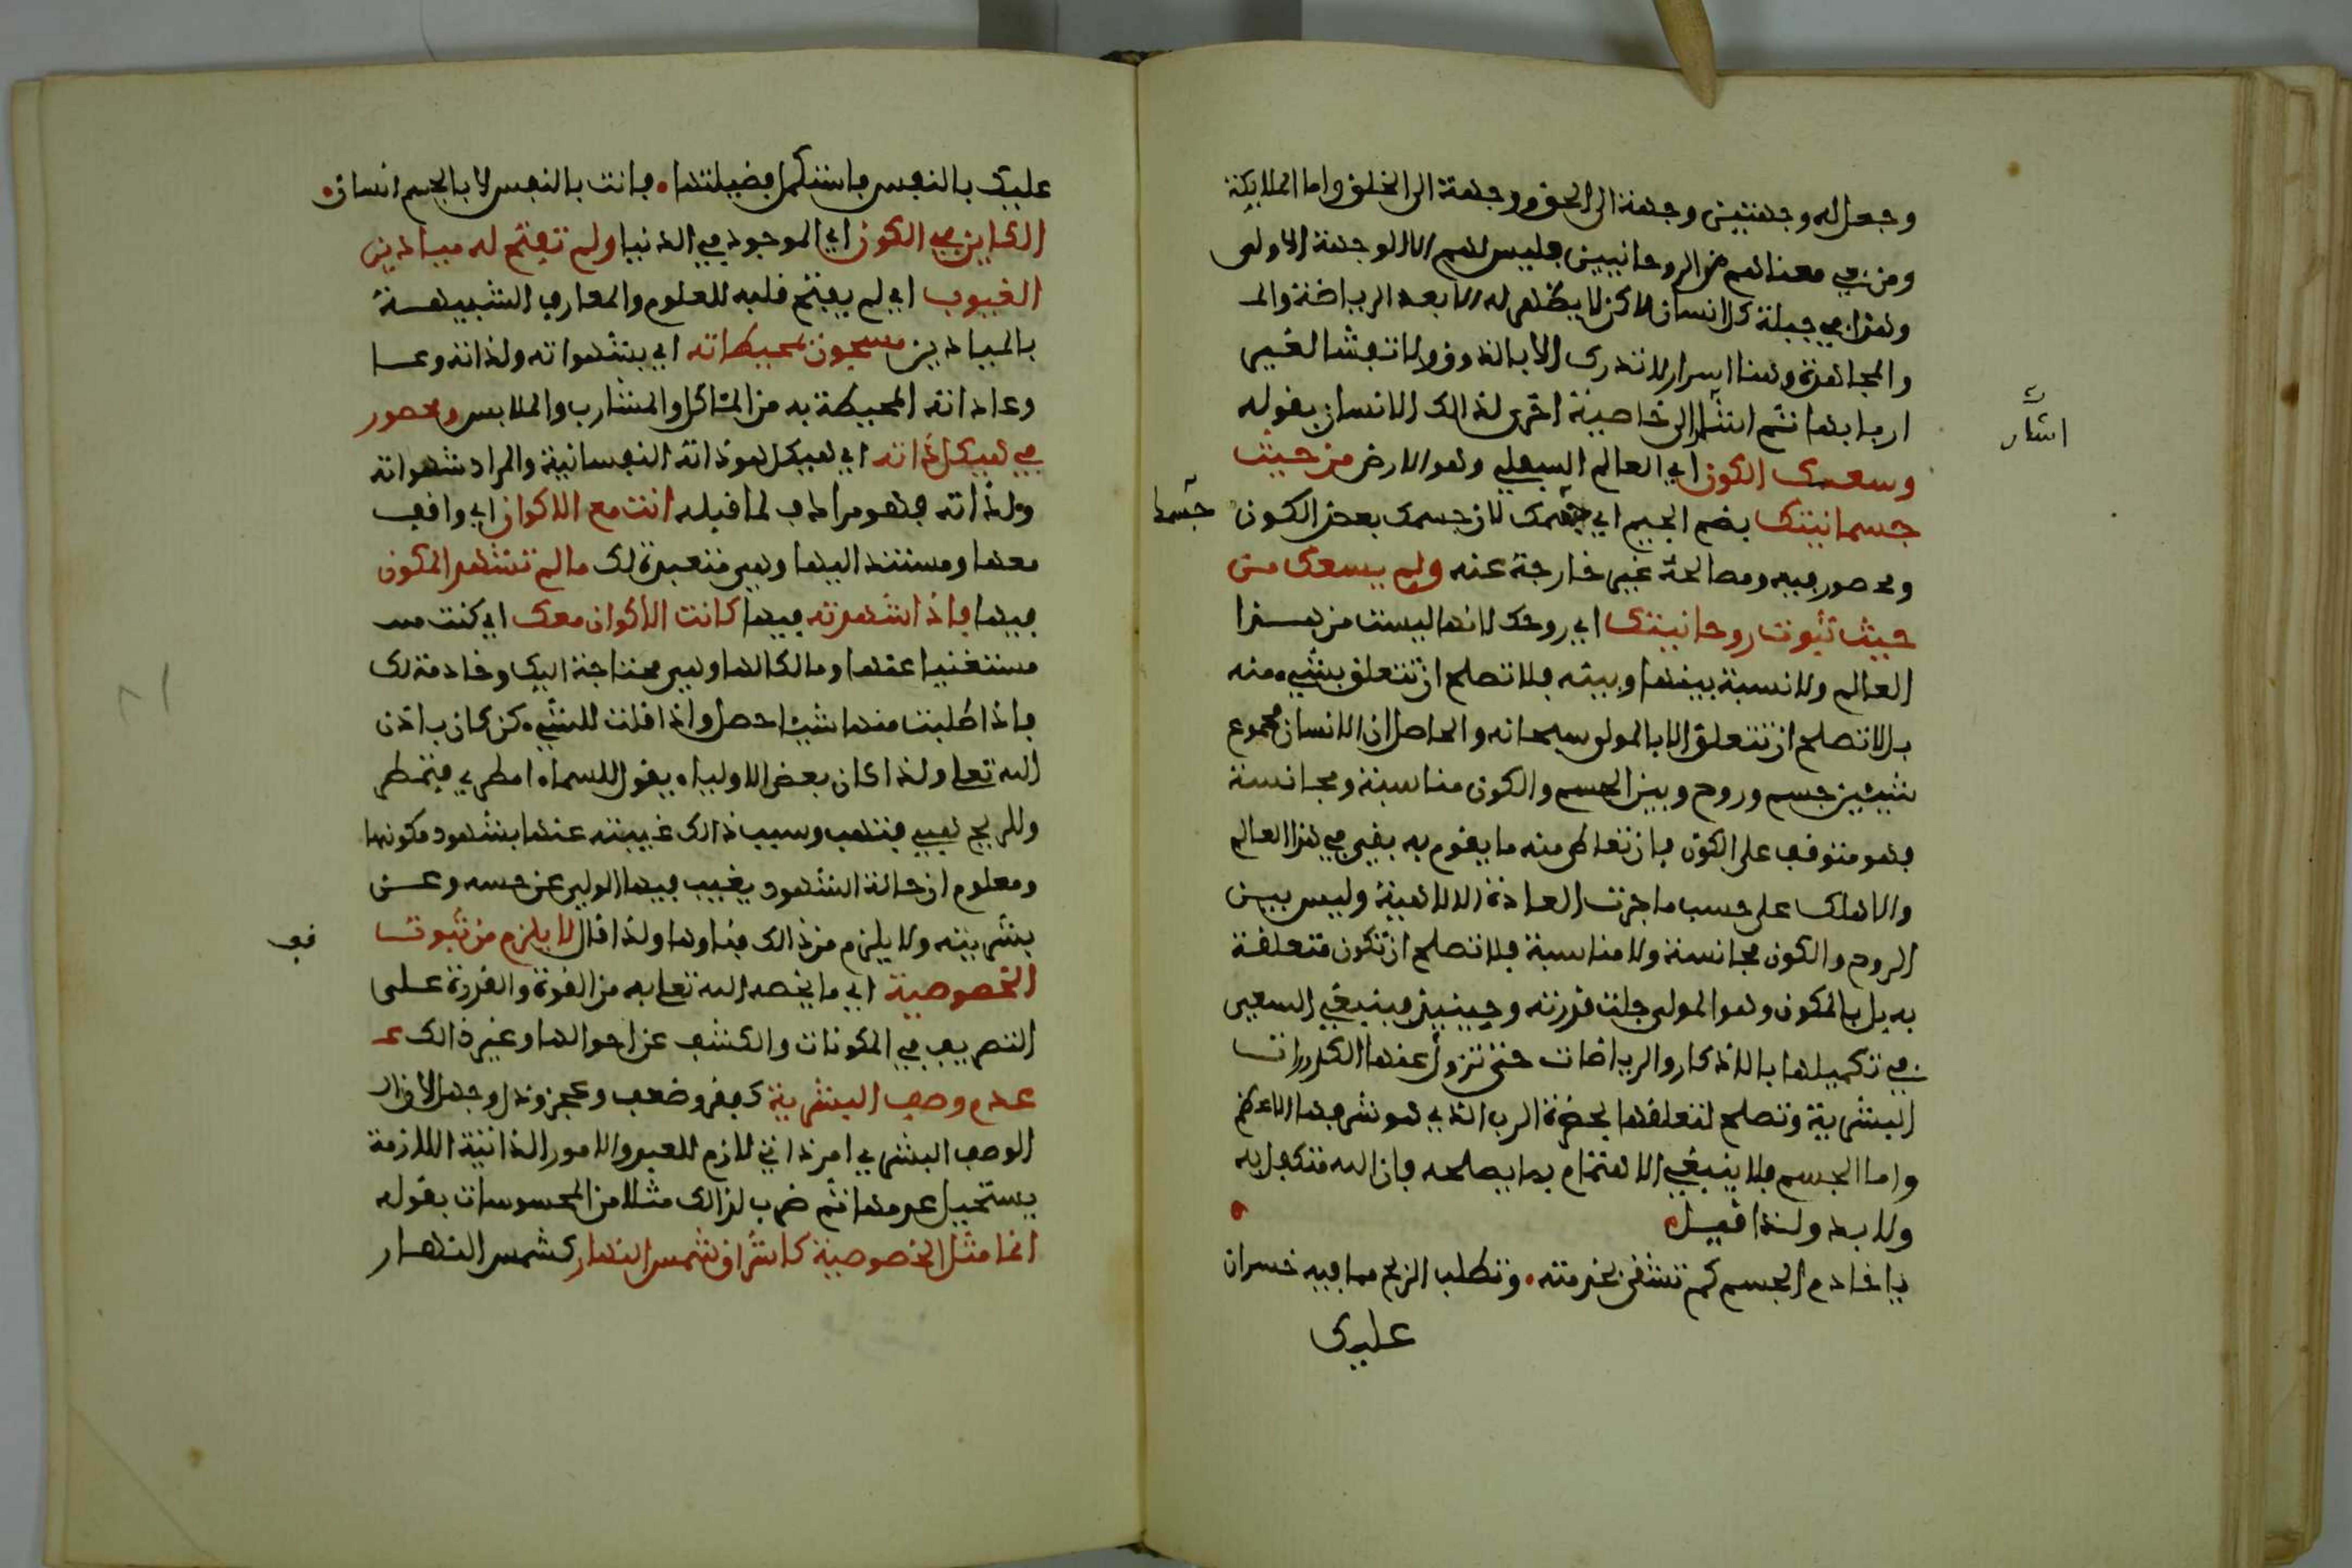 وجعل له وجهتين وجهة الى الحق ووجهة الى الخلق واما الملايكة
ومن في معناهم من الروحانيين فليس لهم الا الوجهة الاولى
وهذا في جبلة كل انسان لاكن لا يظهر له الا بعد الرياضة والمـ
والمجاهدة وهنا اسرار لا تدرى الا بالذوق ولا تفشا لغير
اربابها ثم اشار الى خاصية اخرى لذالك الانسان بقوله
اشار
وسعك الكون اي العالم السفلي وهو الارض من حيث
جسمانيتك بضم الجيم اي جسمك لان جسمك بعض الكون
جسما
ومحصور فيه ومصالحه غير خارجة عنه ولم يسعك من
حيث ثبوت روحانيتك اي روحك لانها ليست من هذا
العالم ولا نسبة بينها وبينه فلا تصلح ان تتعلق بشيء منه
بل لا تصلح ان تتعلق الا بالمولى سبحانه والحاصل ان الانسان مجموع
شيئين جسم وروح وبين الجسم والكون مناسبة ومجانسة
فهو متوقف على الكون فان تعاطى منه ما يقوم به بقي في هذا العالم
والا هلك على حسب ما جرت العادة الالاهية وليس بين
الروح والكون مجانسة ولا مناسبة فلا تصلح ان تكون متعلقة
به بل بالمكون وهو المولى جلت قدرته وحينيذ فينبغي السعي
في تكميلها بالاذكار والرياضات حتى تزول عنها الكدورات
البشرية وتصلح لتعلقها بحضرة الرب الذي هو شرفها الاعظم
واما الجسم فلا ينبغي الاهتمام بما يصلحه فان الله متكفل به
ولا بد ولذا قيل
يا خادم الجسم كم تشقى بخدمته وتطلب الربح مما فيه خسران
عليك
عليك بالنفس فاستكمل فضيلتها فانت بالنفس لا بالجسم انسان
الكاين في الكون اي الموجود في الدنيا ولم تفتح له ميادين
الغيوب اي لم يفتح قلبه للعلوم والمعارف الشبيهة
بالميادين مسجون بمحيطاته اي بشهواته ولذاته وعا
وعاداته المحيطة به من المئاكل والمشارب والملابس ومحصور
في هيكل ذاته اي هيكل هو ذاته النفسانية والمراد شهواته
ولذاته فهو مرادف لما قبله انت مع الاكوان اي واقف
معها ومستند اليها وهي متعبدة لك ما لم تشهد المكون
فيها فاذا شهدته فيها كانت الاكوان معك اي كنت مسـ
مستغنيا عنها ومالكا لها وهي محتاجة اليك وخادمة لك
فاذا طلبت منها شيئا حصل واذا قلت للشيء كن كان باذن
الله تعلى ولذا كان بعض الاولياء يقول للسماء امطري فتمطر
وللريح هبي فتهب وسبب ذالك غيبته عنها بشهود مكونها
ومعلوم ان حالة الشهود يغيب فيها الولي عن حسه وعن
بشريته ولا يلزم من ذالك فناوها ولذا قال لا يلزم من ثبوت
الخصوصية اي ما يخصه الله تعلى به من القوة والقدرة على
التصريف في المكونات والكشف عن احوالها وغير ذالك عـ
عدم وصف البشرية كفقر وضعف وعجز وذل وجهل لان
الوصف البشري امر ذاتي لازم للعبد والامور الذاتية اللازمة
يستحيل عدمها ثم ضرب لذالك مثلا من المحسوسات بقوله
انما مثل الخصوصية كاشراق شمس النهار كشمس النهار